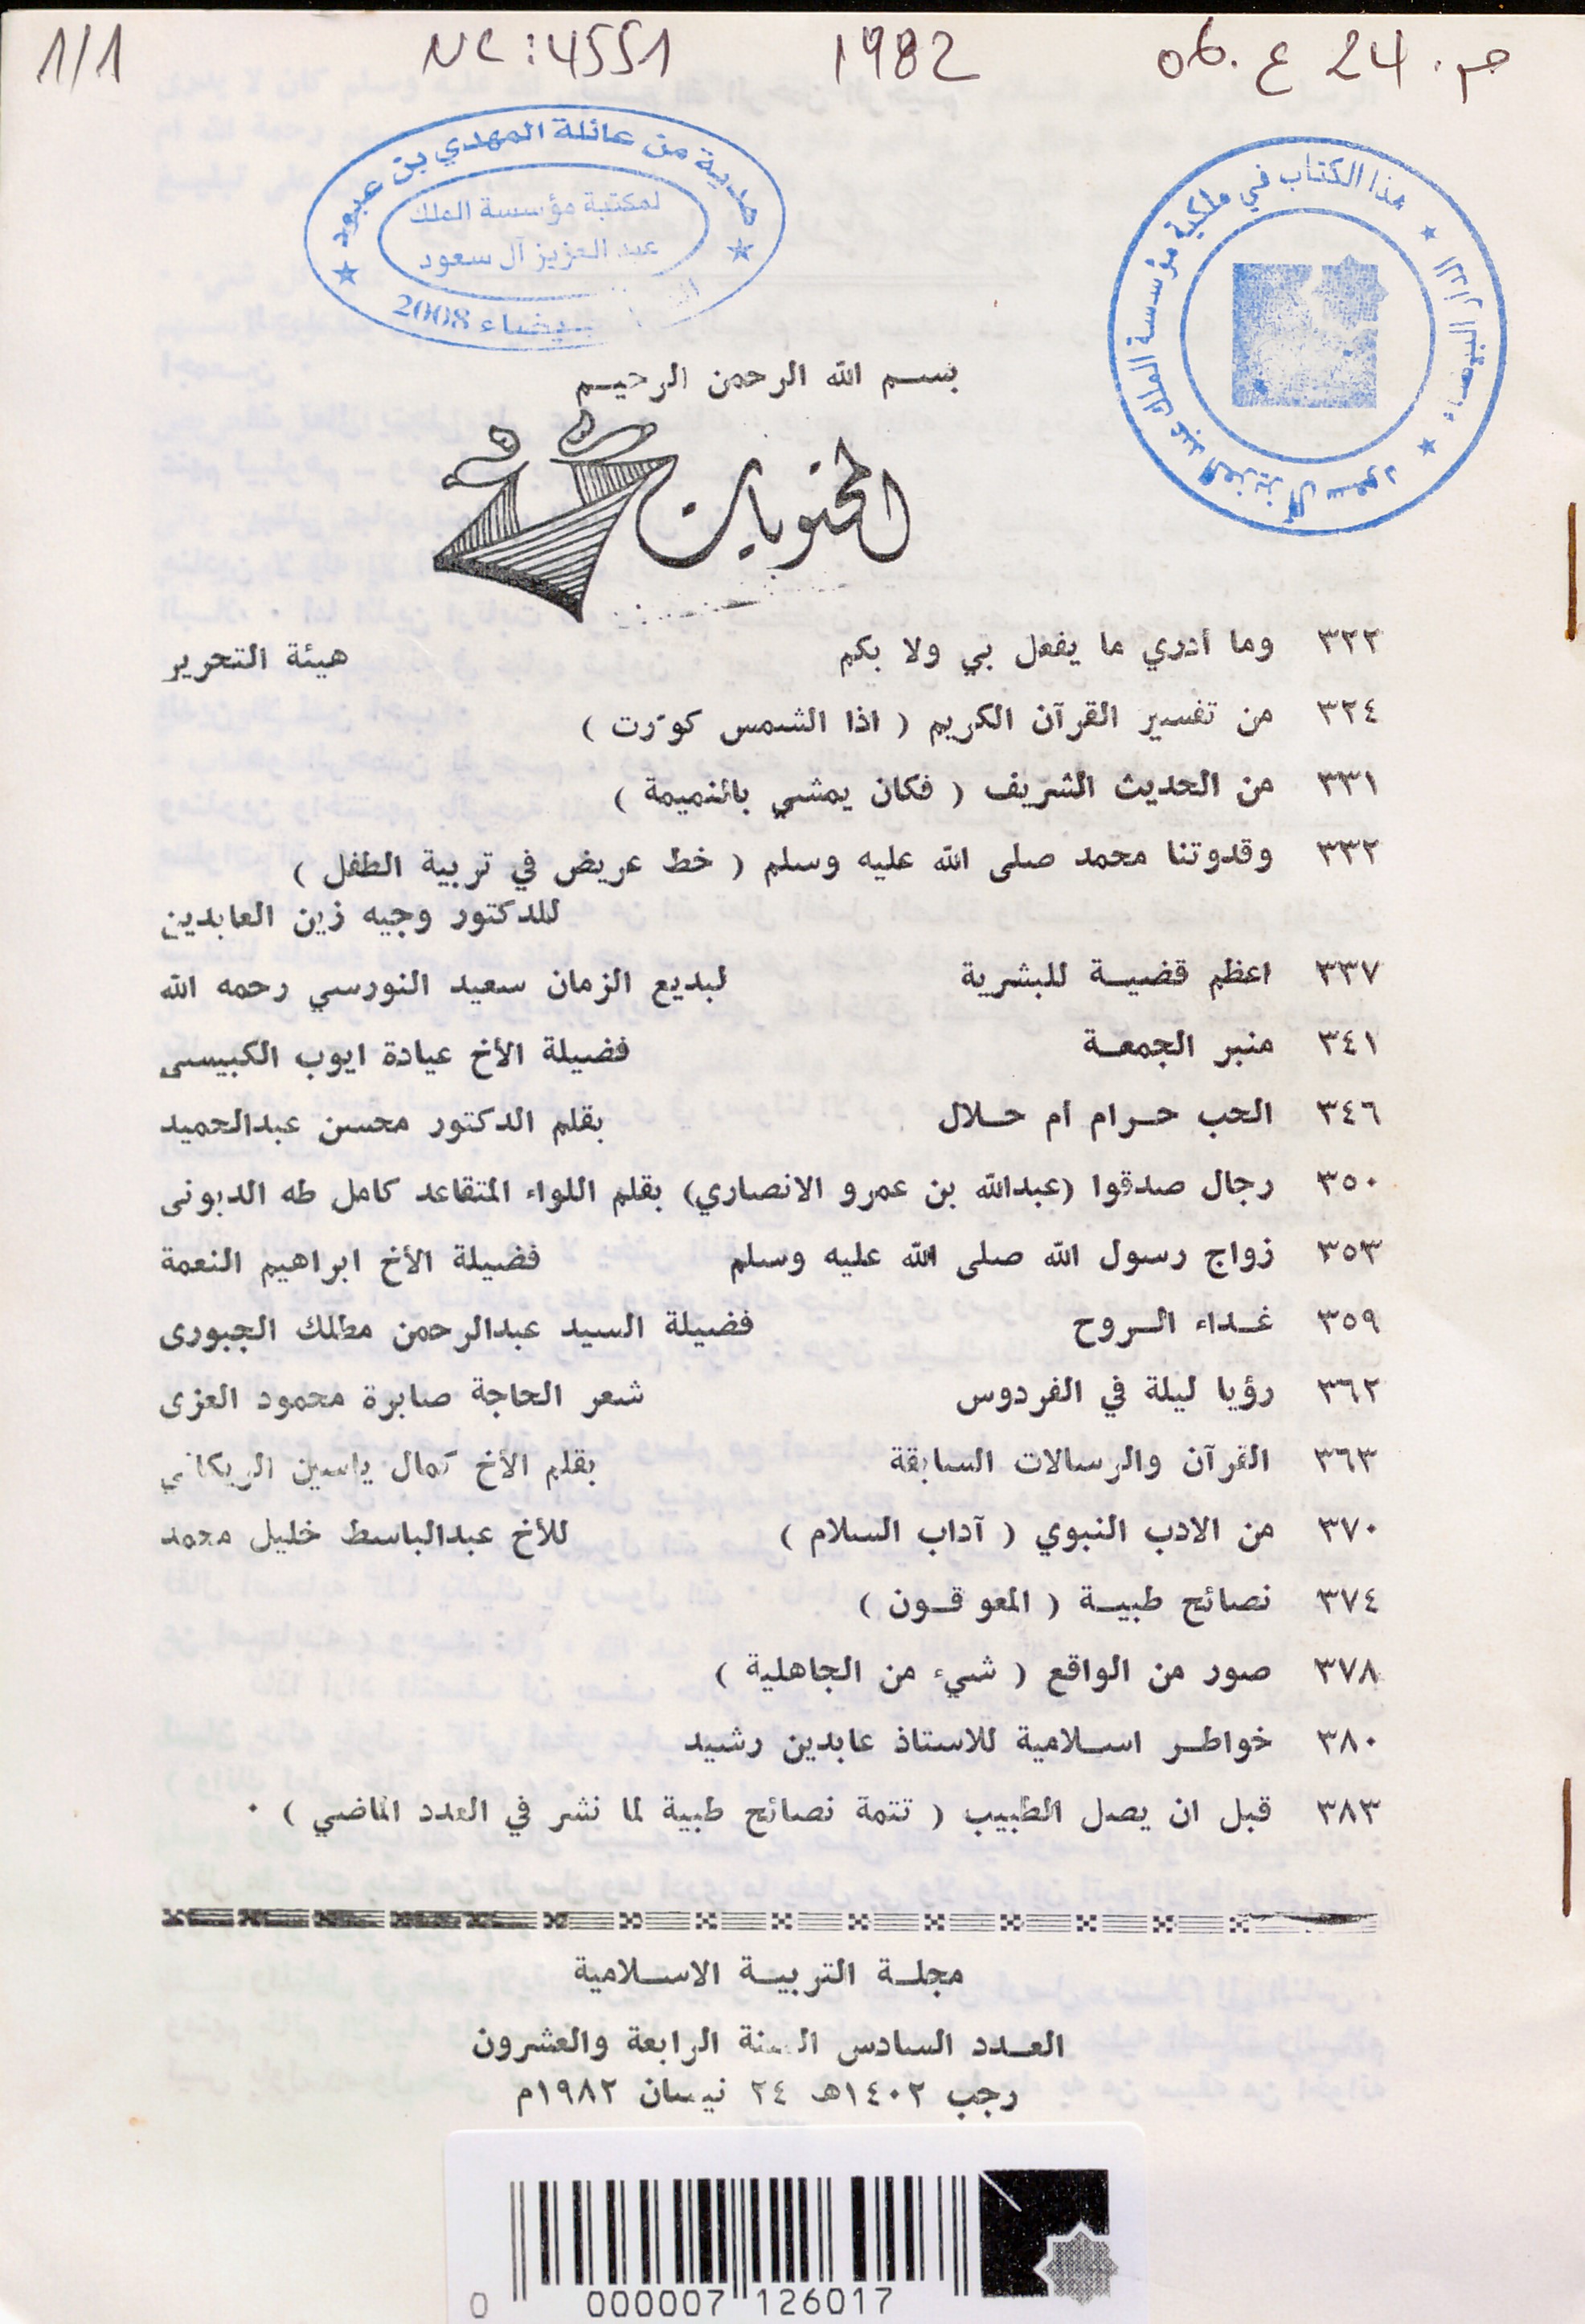 1/1 NC:4551 1982 م. 24 ع. 06
هدية من عائلة المهدي بن عبود
لمكتبة مؤسسة الملك
عبد العزيز آل سعود
بيضاء 2008
هذا الكتاب في ملكية مؤسسة الملك عبد العزيز آل سعود
الدار البيضاء
بسم الله الرحمن الرحيم
المحتويات
٣٢٢ وما أدري ما يفعل بي ولا بكم هيئة التحرير
٣٢٤ من تفسير القرآن الكريم ( اذا الشمس كوّرت )
٣٣١ من الحديث الشريف ( فكان يمشي بالنميمة )
٣٣٢ وقدوتنا محمد صلى الله عليه وسلم ( خط عريض في تربية الطفل )
للدكتور وجيه زين العابدين
٣٣٧ اعظم قضيــة للبشرية لبديع الزمان سعيد النورسي رحمه الله
٣٤١ منبر الجمعــة فضيلة الأخ عيادة ايوب الكبيسى
٣٤٦ الحب حــرام أم حــلال بقلم الدكتور محسن عبدالحميد
٣٥٠ رجال صدقوا (عبدالله بن عمرو الانصاري) بقلم اللواء المتقاعد كامل طه الدبونى
٣٥٣ زواج رسول الله صلى الله عليه وسلم فضيلة الأخ ابراهيم النعمة
٣٥٩ غــداء الــروح فضيلة السيد عبدالرحمن مطلك الجبورى
٣٦٢ رؤيا ليلة في الفردوس شعر الحاجة صابرة محمود العزى
٣٦٣ القرآن والرسالات السابقة بقلم الأخ كمال ياسين الريكاني
٣٧٠ من الادب النبوي ( آداب السلام ) للأخ عبدالباسط خليل محمد
٣٧٤ نصائح طبيــة ( المعوقــون )
٣٧٨ صور من الواقع ( شيء من الجاهلية )
٣٨٠ خواطــر اســلامية للاستاذ عابدين رشيد
٣٨٣ قبل ان يصل الطبيب ( تتمة نصائح طبية لما نشر في العدد الماضي ) ·
مجلــة التربيــة الاســلامية
العــدد السادس السنة الرابعة والعشرون
رجب ١٤٠٢هـ ٢٤ نيسان ١٩٨٢م
0 000007 126017